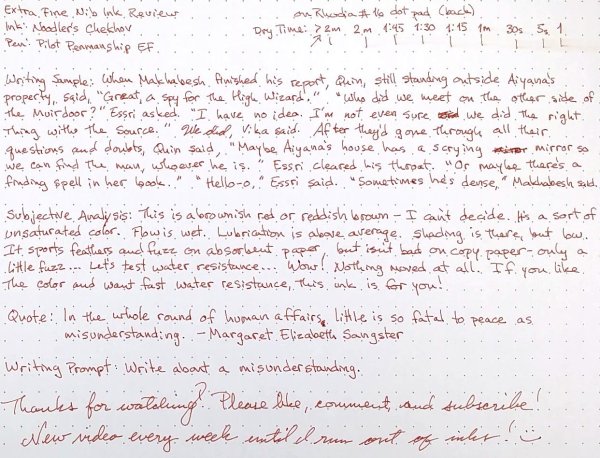 Extra Fine Nib Ink Review on Rhodia #16 dot pad (back)
Ink: Noodler's Chekhov Dry Time: >2m 2m 1:45 1:30 1:15 1m 30s 5s 1
Pen: Pilot Penmanship EF
Writing Sample: When Makhabesh finished his report, Quin, still standing outside Aiyana's
property, said, "Great, a spy for the High Wizard." "Who did we meet on the other side of
the Muirdoor?" Essri asked. "I have no idea. I'm not even sure we did the right
thing with the Source." We did, Vika said. After they'd gone through all their
questions and doubts, Quin said, "Maybe Aiyana's house has a scrying mirror so
we can find the man, whoever he is." Essri cleared his throat. "Or maybe there's a
finding spell in her book." "Hello-o," Essri said. "Sometimes he's dense," Makhabesh said.
Subjective Analysis: This is a brownish red or reddish brown - I can't decide. It's a sort of
unsaturated color. Flow is wet. Lubrication is above average. Shading is there, but low.
It sports feathers and fuzz on absorbent paper, but isn't bad on copy paper - only a
little fuzz... Let's test water resistance... Wow! Nothing moved at all. If you like
the color and want fast water resistance, this ink is for you!
Quote: In the whole round of human affairs, little is so fatal to peace as
misunderstanding. - Margaret Elizabeth Sangster
Writing Prompt: Write about a misunderstanding.
Thanks for watching! Please like, comment, and subscribe!
New video every week until I run out of inks! :)